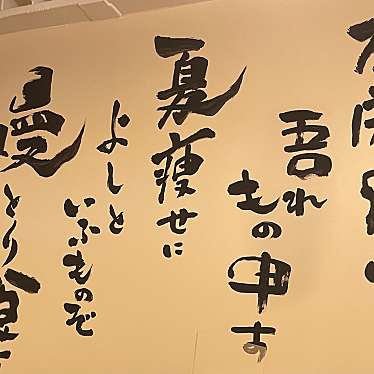 吾れ
もの申す
夏痩せに
よしと
いふものぞ
鰻とり食